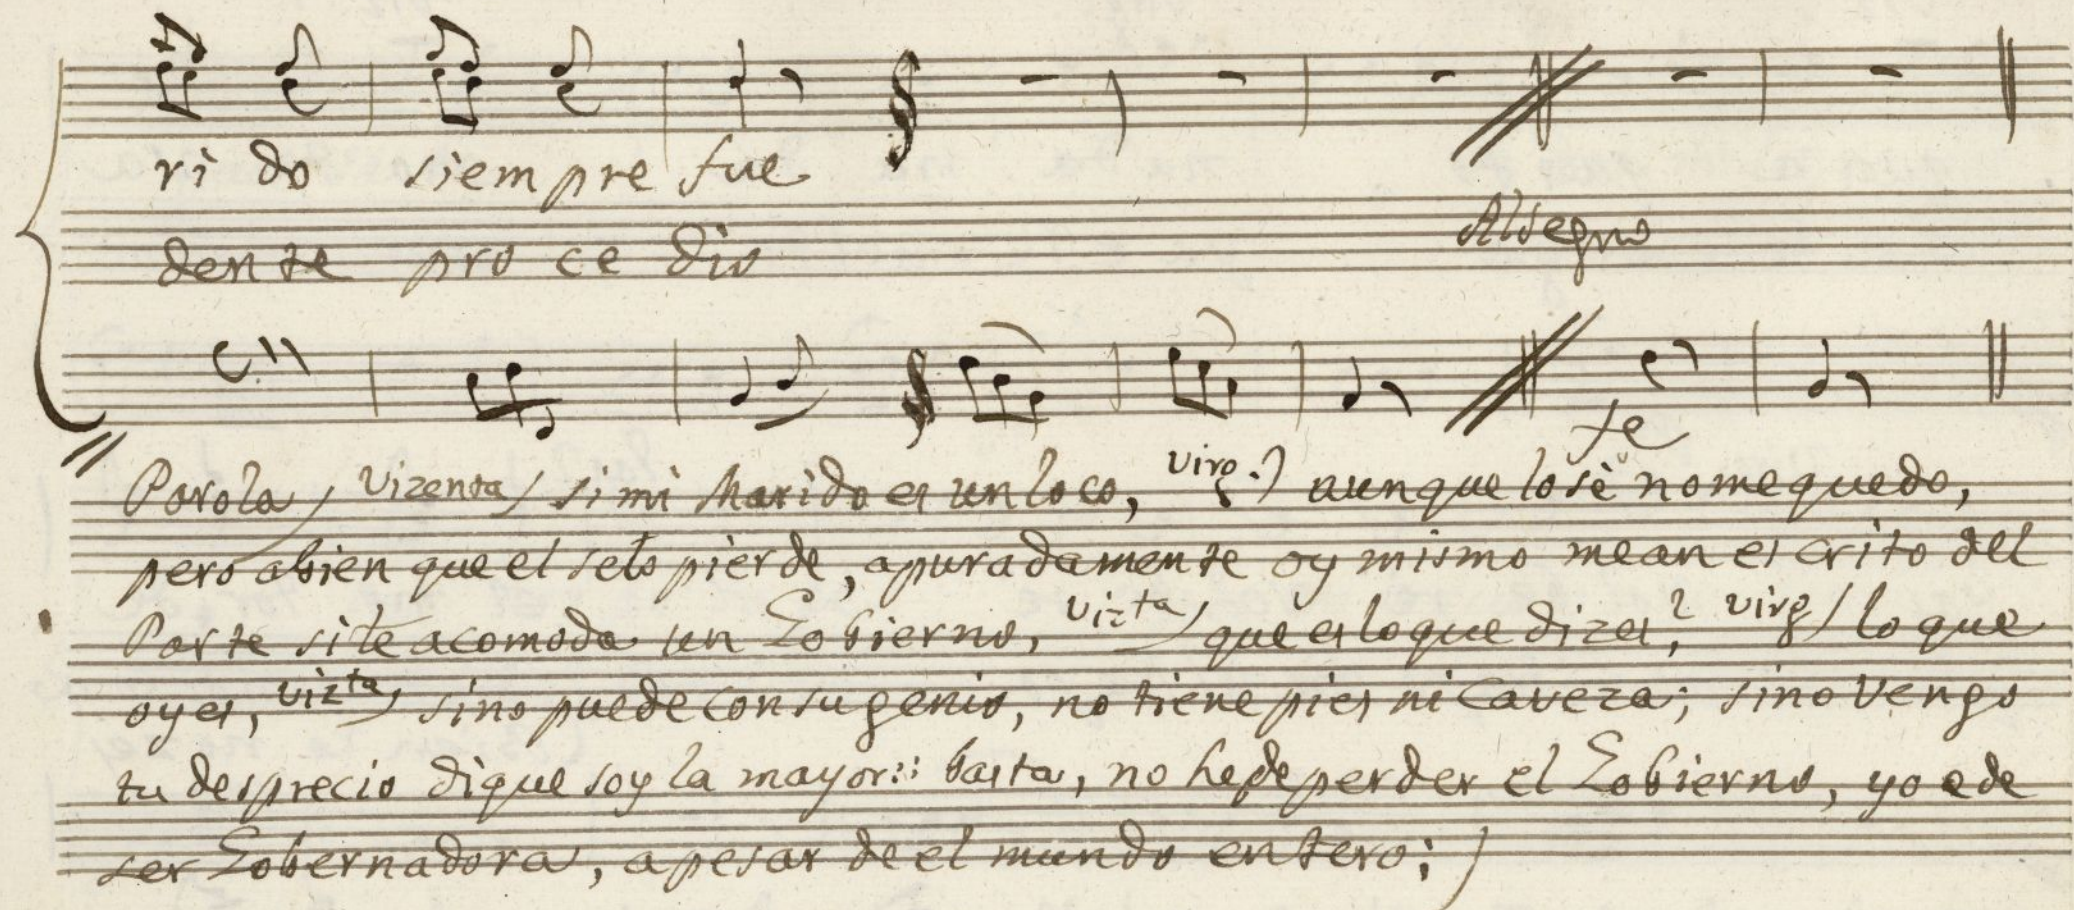 ri do siempre fue
Al segno
dente pro ce dio
fe
Parola, Vizenta) si mi Marido es un loco, virg.) aunque lo sè no me quedo,
pero abien que el selo pierde, apuradamente oy mismo mean escrito del
Parte site acomoda un Gobierno, vizta) que es lo que dizes,? virg) lo que
oyes, vizta) sino puede con su genio, no tiene pies ni Caveza; sino vengo
tu desprecio di que soy la mayor:: basta, no he de perder el Gobierno, yo ede
ser Gobernadora, apesar de el mundo entero;)